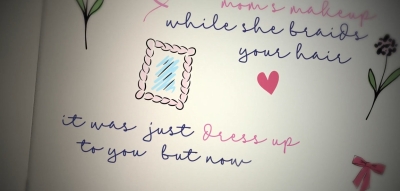 mom's makeup
while she braids
your hair
it was just dress up
to you but now